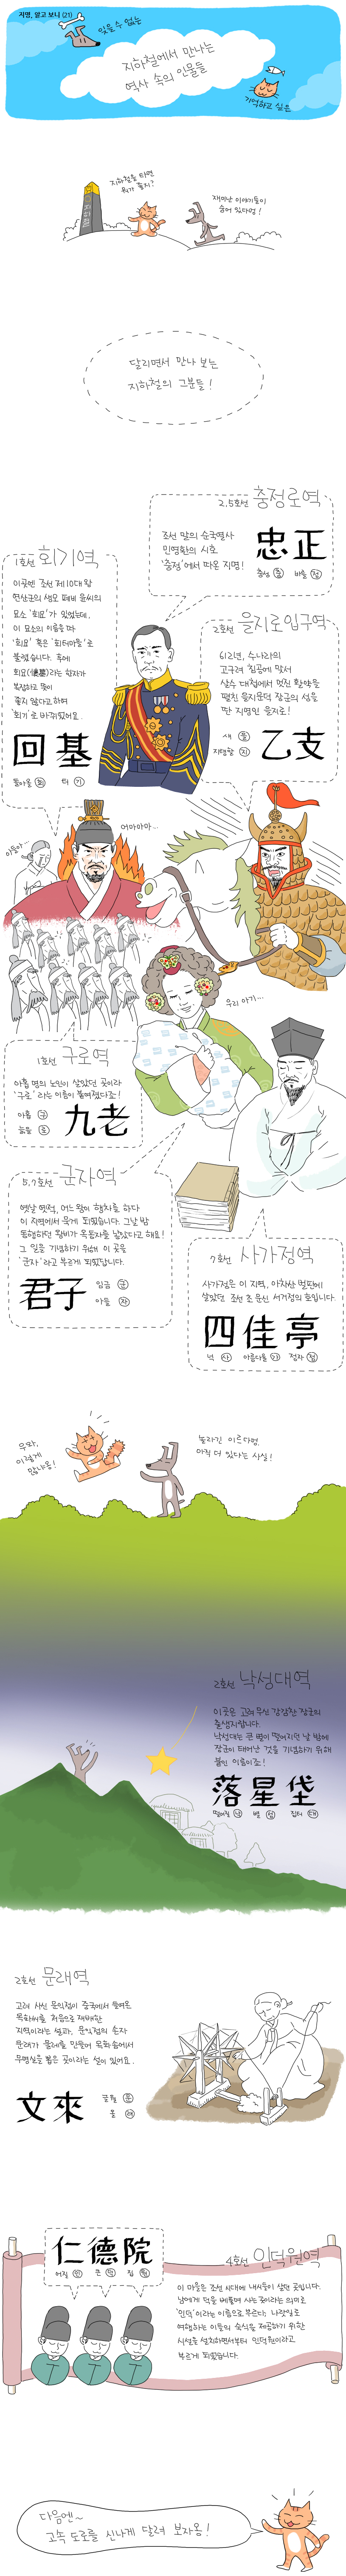 지명, 알고 보니 (21)
잊을 수 없는
지하철에서 만나는
역사 속의 인물들
기억하고 싶은
지하철을 타면
뭐가 좋지?
재미난 이야기들이
숨어 있다멍!
달리면서 만나 보는
지하철의 그분들!
2, 5호선 충정로역
조선 말의 순국열사
민영환의 시호
'충정'에서 따온 지명!
忠正
충성 충 바를 정
1호선 회기역
이곳엔 조선 제10대 왕
연산군의 생모 폐비 윤씨의
묘소 '회묘'가 있었는데,
이 묘소의 이름을 따
'회묘' 혹은 '회터마을'로
불렸습니다. 후에
회묘(懷墓)라는 한자가
복잡하고 뜻이
좋지 않다고 하여
'회기'로 바뀌었어요.
回基
돌아올 회 터 기
2호선 을지로입구역
612년, 수나라의
고구려 침공에 맞서
살수 대첩에서 멋진 활약을
펼친 을지문덕 장군의 성을
딴 지명인 을지로!
乙支
새 을
지탱할 지
아들아…
어마마마…
우리 아기…
1호선 구로역
아홉 명의 노인이 살았던 곳이라
'구로'라는 이름이 붙여졌다죠!
九老
아홉 구
늙을 로
5, 7호선 군자역
옛날 옛적, 어느 왕이 행차를 하다
이 지역에서 묵게 되었습니다. 그날 밤
동행하던 왕비가 옥동자를 낳았다고 해요!
그 일을 기념하기 위해 이 곳을
'군자'라고 부르게 되었답니다.
君子
임금 군
아들 자
7호선 사가정역
사가정은 이 지역, 아차산 밑단에
살았던 조선 초 문신 서거정의 호입니다.
四佳亭
넉 사 아름다울 가 정자 정
우와,
이렇게
많냐옹!
놀라긴 이르다멍.
아직 더 있다는 사실!
2호선 낙성대역
이곳은 고려 무신 강감찬 장군의
출생지랍니다.
낙성대는 큰 별이 떨어지던 날 밤에
장군이 태어난 것을 기념하기 위해
붙인 이름이죠!
落星垈
떨어질 낙 별 성 집터 대
2호선 문래역
고려 시대 문익점이 중국에서 들여온
목화씨를 처음으로 재배한
지역이라는 설과, 문익점의 손자
문래가 물레를 만들어 목화솜에서
무명실을 뽑은 곳이라는 설이 있어요.
文來
글월 문
올 래
仁德院
어질 인 큰 덕 집 원
4호선 인덕원역
이 마을은 조선 시대에 내시들이 살던 곳입니다.
남에게 덕을 베풀며 사는 곳이라는 의미로
'인덕'이라는 이름으로 부르다, 나랏일로
여행하는 이들의 숙식을 제공하기 위한
시설을 설치하면서부터 인덕원이라고
부르게 되었습니다.
다음엔~
고속 도로를 신나게 달려 보자옹!